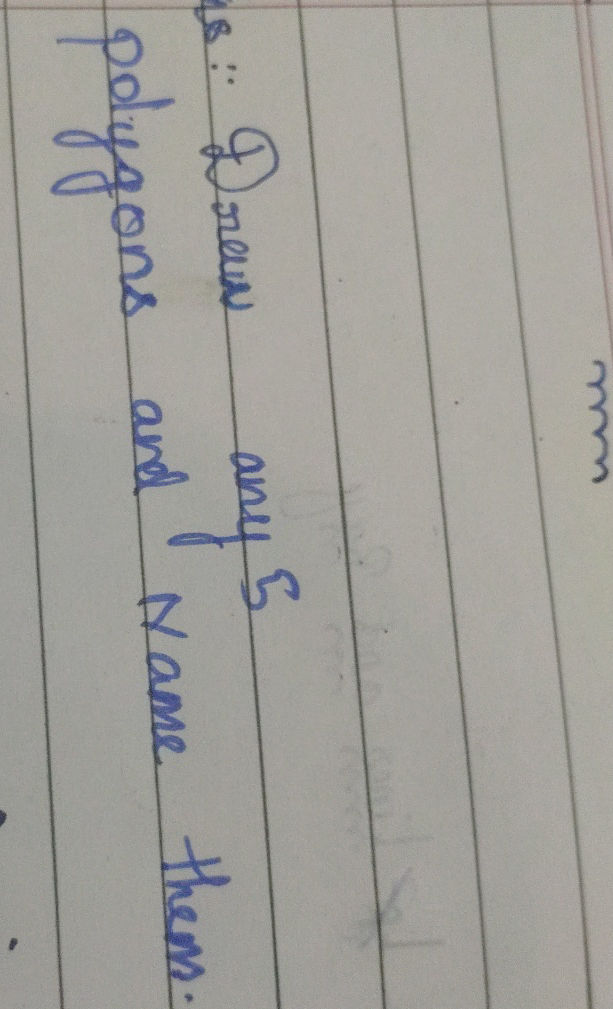 :: Draw any 5
polygons and Name them.